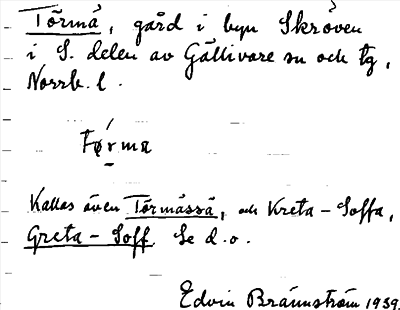 Törmä, gård i byn Skröven
i S. delen av Gällivare sn och tg,
Norrb. l.
Tørma
Kallas även Törmässä, och Kreta-Soffa,
Greta-Soff. Se d.o.
Edvin Brännström 1939.